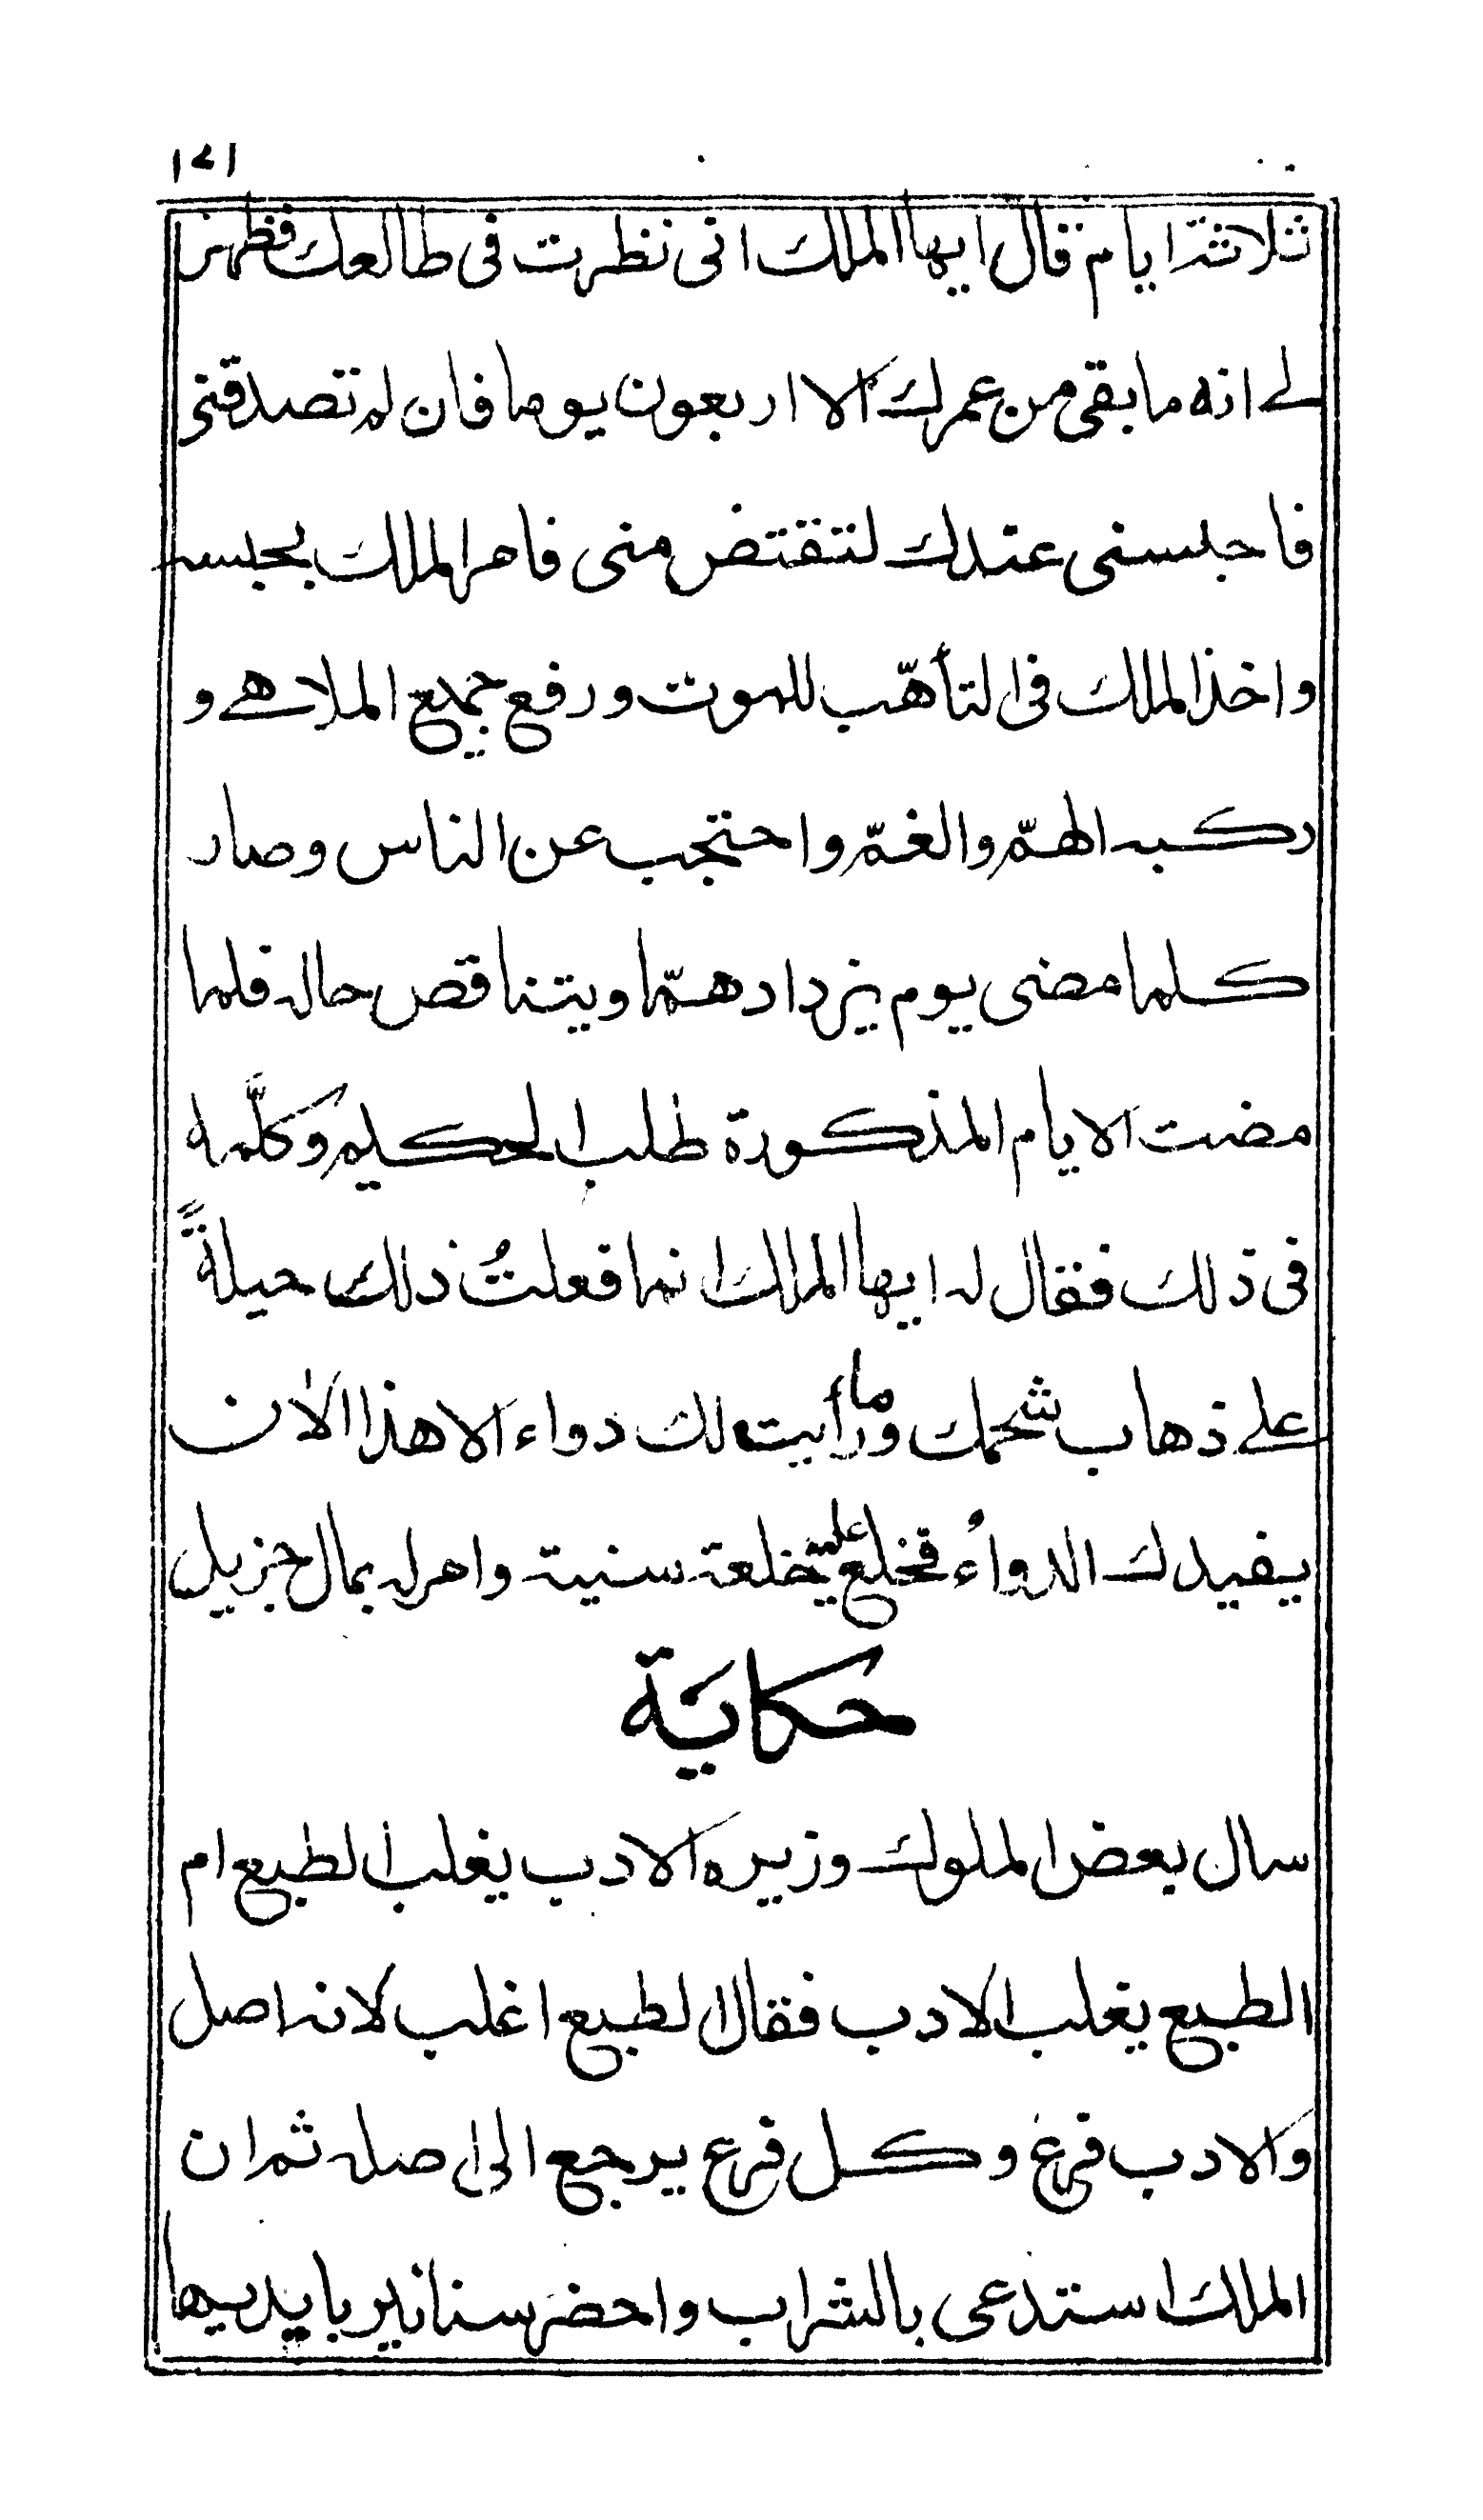 ١٤١
ثلاثة ايام قال ايها الملك انى نظرت فى طالعك فظهر
لے انه ما بقى من عمرك الا اربعون يوما فان لم تصدقنى
فاحبسنى عندك لتقتض منى فامر الملك بحبسه
واخذ الملك فى التأهّب للموت ورفع جميع الملاهے و
ركبه الهمّ والغمّ واحتجب عن الناس وصار
كلما مضى يوم يزداد همّا ويتناقص حاله فلما
مضت الايام المذكورة طلب الحكيم وكلّمه
فى ذلك فقال له ايها الملك انما فعلتُ ذلك حيلةً
علے ذهاب شحمك وما رأيت لك دواء الا هذا الان
يفيدك الدواءُ فخلع عليه خلعة سنية وامر له بمال جزيل
حكاية
سال بعض الملوك وزيره الادب يغلب الطبع ام
الطبع يغلب الادب فقال الطبع اغلب لانه اصل
والادب فرع وكل فرع يرجع الى اصله ثم ان
الملك استدعى بالشراب واحضر سنانير بايديها